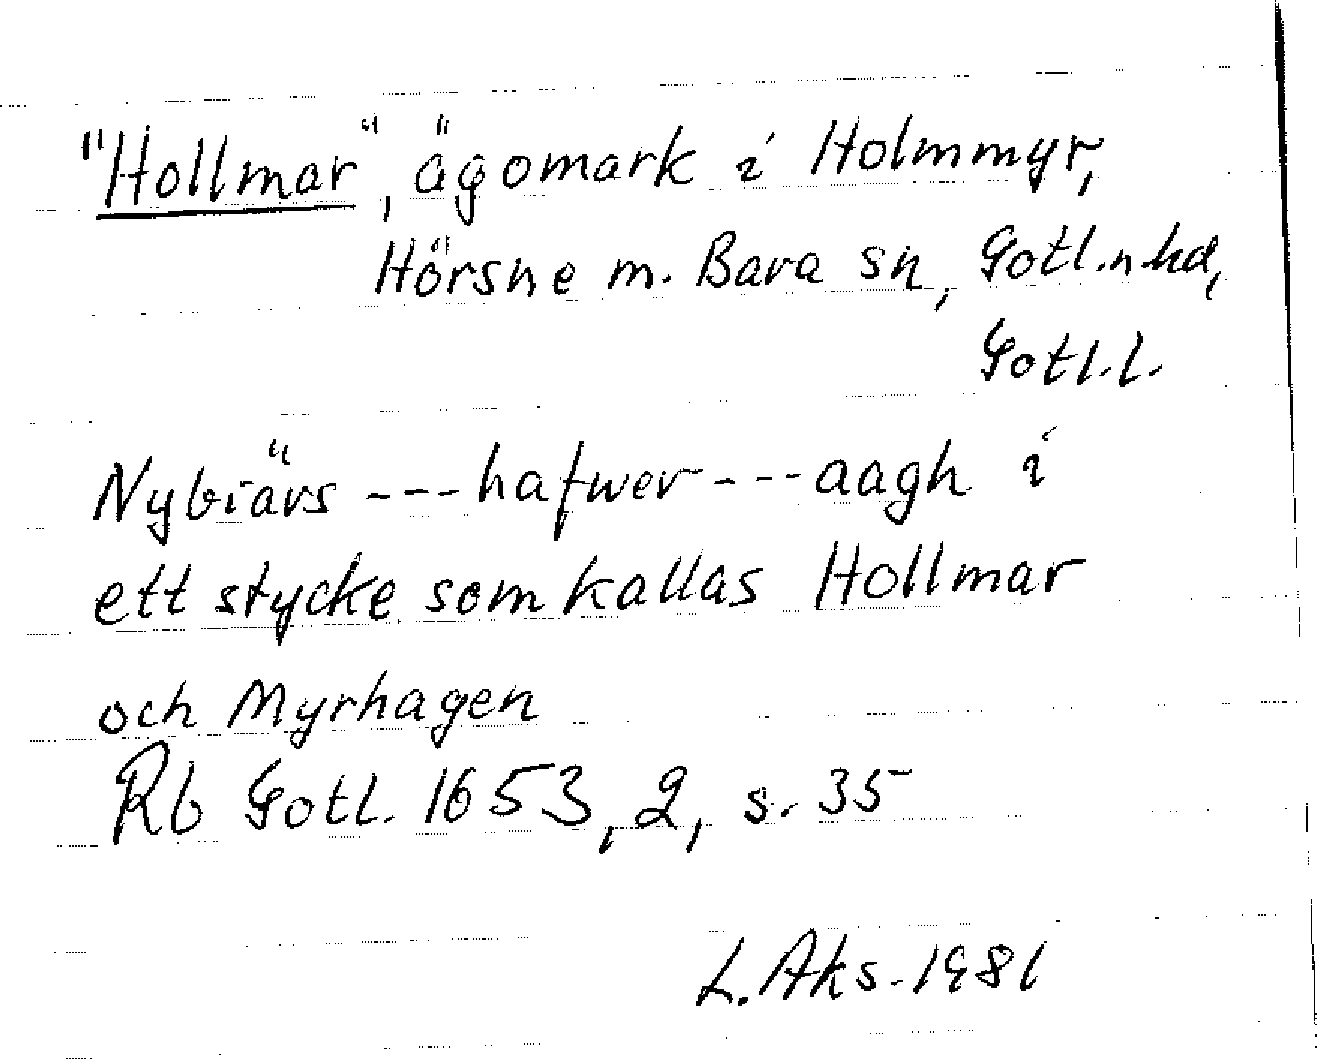 "Hollmar", ägomark i Holmmyr,
Hörsne m. Bara sn, Gotl.n.hd,
Gotl.l.
Nybiärs ---hafwer---aagh i
ett stycke som kallas Hollmar
och Myrhagen
Rb Gotl. 1653, 2, s. 35
L. Aks. 1981